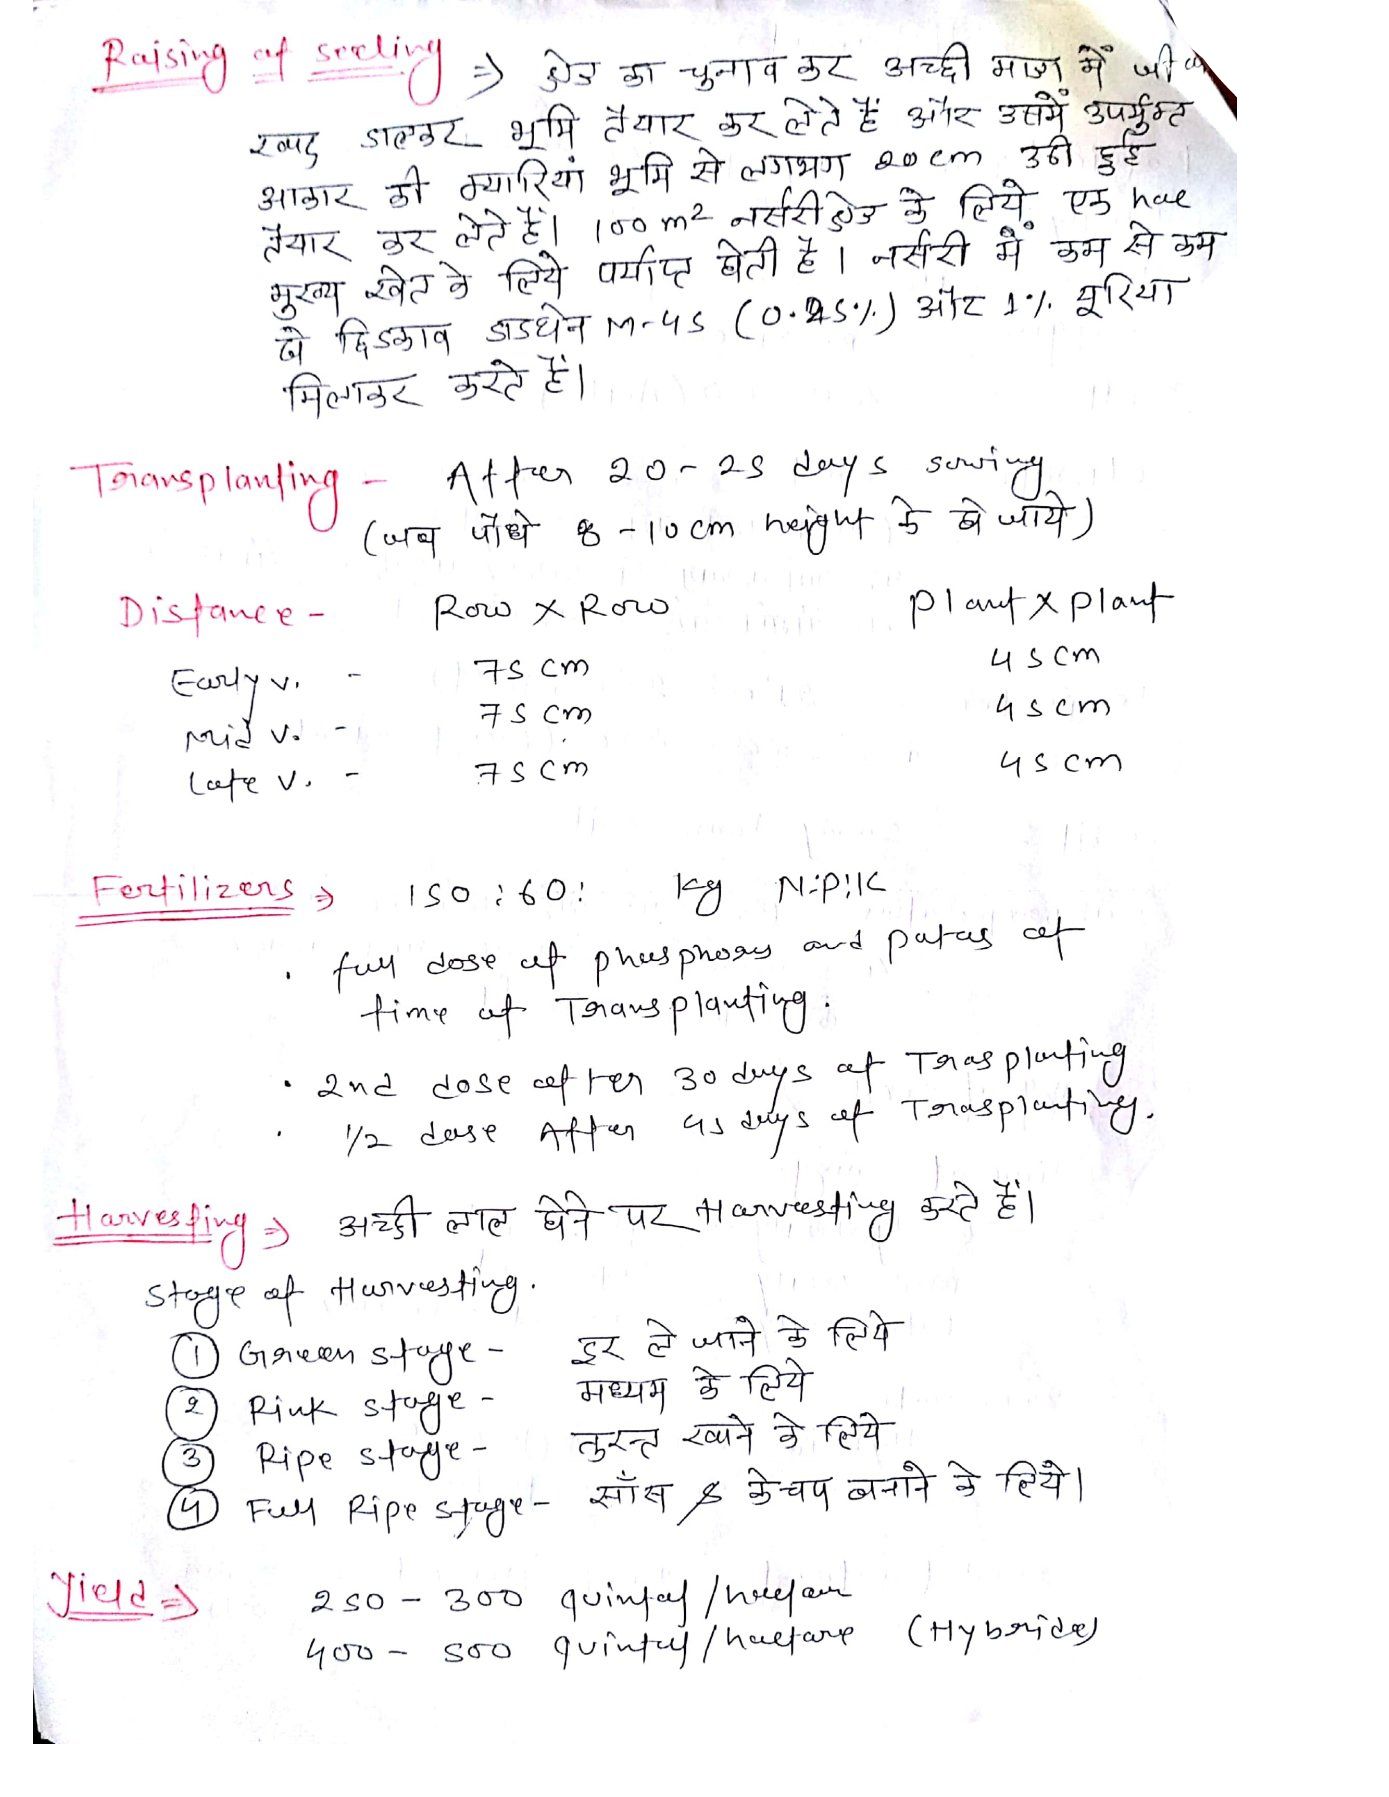 Raising of seeling ⇒ क्षेत्र का चुनाव कर अच्छी मात्रा में
खाद डालकर भूमि तैयार कर लेते हैं और उसमें उपर्युक्त
आकार की क्यारियां भूमि से लगभग 20 cm उठी हुई
तैयार कर लेते हैं। 100 m² नर्सरी क्षेत्र के लिये एक hac
मुख्य खेत के लिये पर्याप्त होती है। नर्सरी में कम से कम
दो छिडकाव डाइथेन M-45 (0.25%) और 1% यूरिया
मिलाकर करते हैं।
Transplanting - After 20-25 days sowing
(जब पौधे 8-10 cm height के हो जाये)
Distance - Row × Row Plant × Plant
Early v. - 75 cm 45 cm
Mid v. - 75 cm 45 cm
Late v. - 75 cm 45 cm
Fertilizers ⇒ 150 : 60 : kg N:P:K
• full dose of phosphors and potas at
time of Transplanting.
• 2nd dose after 30 days of Trasplanting
• 1/2 dose After 45 days of Trasplanting.
Harvesting ⇒ अच्छी लाल होने पर Harvesting करते हैं।
Stage of Harvesting.
① Green stage - दूर ले जाने के लिये
② Pink stage - मध्यम के लिये
③ Ripe stage - तुरन्त खाने के लिये
④ Full Ripe stage - साँस & केचप बनाने के लिये।
Yield ⇒ 250 - 300 quintal/hectare
400 - 500 quintal/hactare (Hybrids)